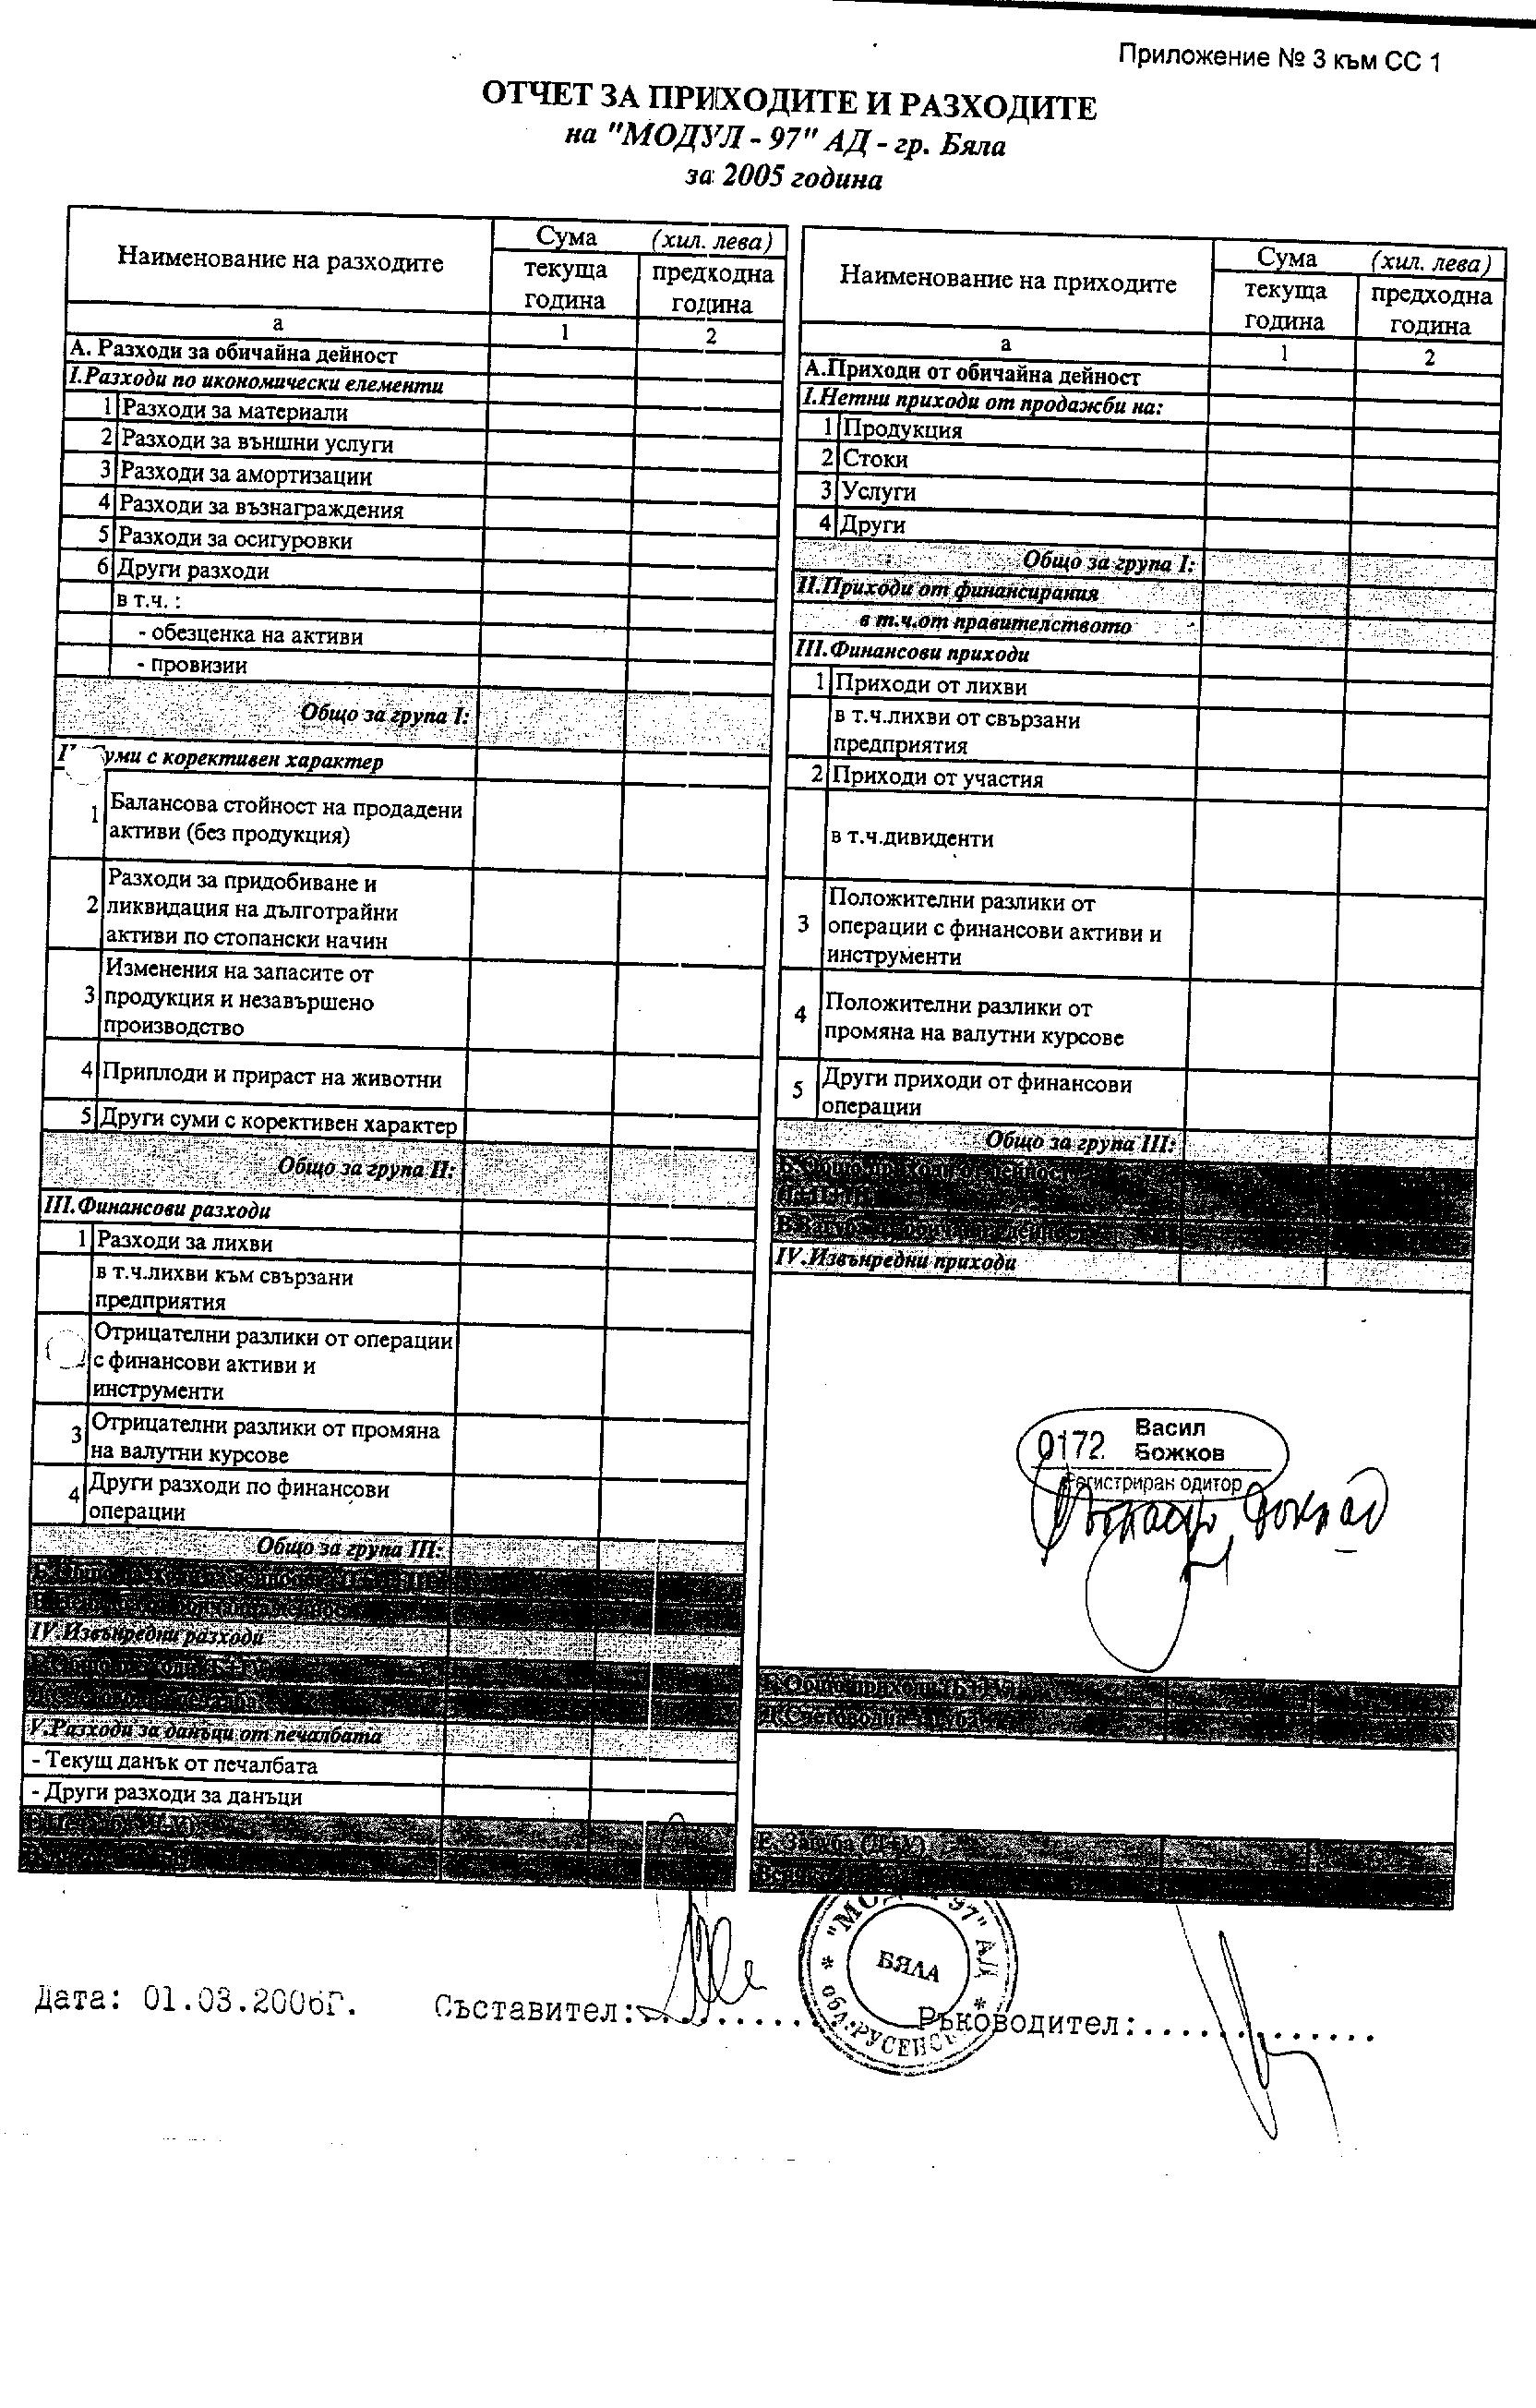 Приложение № 3 към СС 1
ОТЧЕТ ЗА ПРИХОДИТЕ И РАЗХОДИТЕ
на "МОДУЛ - 97" АД - гр. Бяла
за 2005 година
Наименование на разходите
Сума (хил. лева)
текуща година
предходна година
а 1 2
А. Разходи за обичайна дейност
I.Разходи по икономически елементи
1 Разходи за материали
2 Разходи за външни услуги
3 Разходи за амортизации
4 Разходи за възнаграждения
5 Разходи за осигуровки
6 Други разходи
в т.ч. :
- обезценка на активи
- провизии
Общо за група I:
с корективен характер
1 Балансова стойност на продадени
активи (без продукция)
2 Разходи за придобиване и
ликвидация на дълготрайни
активи по стопански начин
3 Изменения на запасите от
продукция и незавършено
производство
4 Приплоди и прираст на животни
5 Други суми с корективен характер
Общо за група II:
III.Финансови разходи
1 Разходи за лихви
в т.ч.лихви към свързани
предприятия
Отрицателни разлики от операции
с финансови активи и
инструменти
3 Отрицателни разлики от промяна
на валутни курсове
4 Други разходи по финансови
операции
Общо за група III:
IV.Извънредни разходи
V.Разходи за данъци от печалбата
- Текущ данък от печалбата
- Други разходи за данъци
Наименование на приходите
Сума (хил. лева)
текуща година
предходна година
а 1 2
А.Приходи от обичайна дейност
I.Нетни приходи от продажби на:
1 Продукция
2 Стоки
3 Услуги
4 Други
Общо за група I:
II.Приходи от финансирания
в т.ч.от правителството
III.Финансови приходи
1 Приходи от лихви
в т.ч.лихви от свързани
предприятия
2 Приходи от участия
в т.ч.дивиденти
3 Положителни разлики от
операции с финансови активи и
инструменти
4 Положителни разлики от
промяна на валутни курсове
5 Други приходи от финансови
операции
Общо за група III:
IV.Извънредни приходи
0172 Васил
Божков
Регистриран одитор
доклад
Е. Загуба (Д+V)
"МОДУЛ 97" АД
БЯЛА
Дата: 01.03.2006г. Съставител:.......... Ръководител:.............